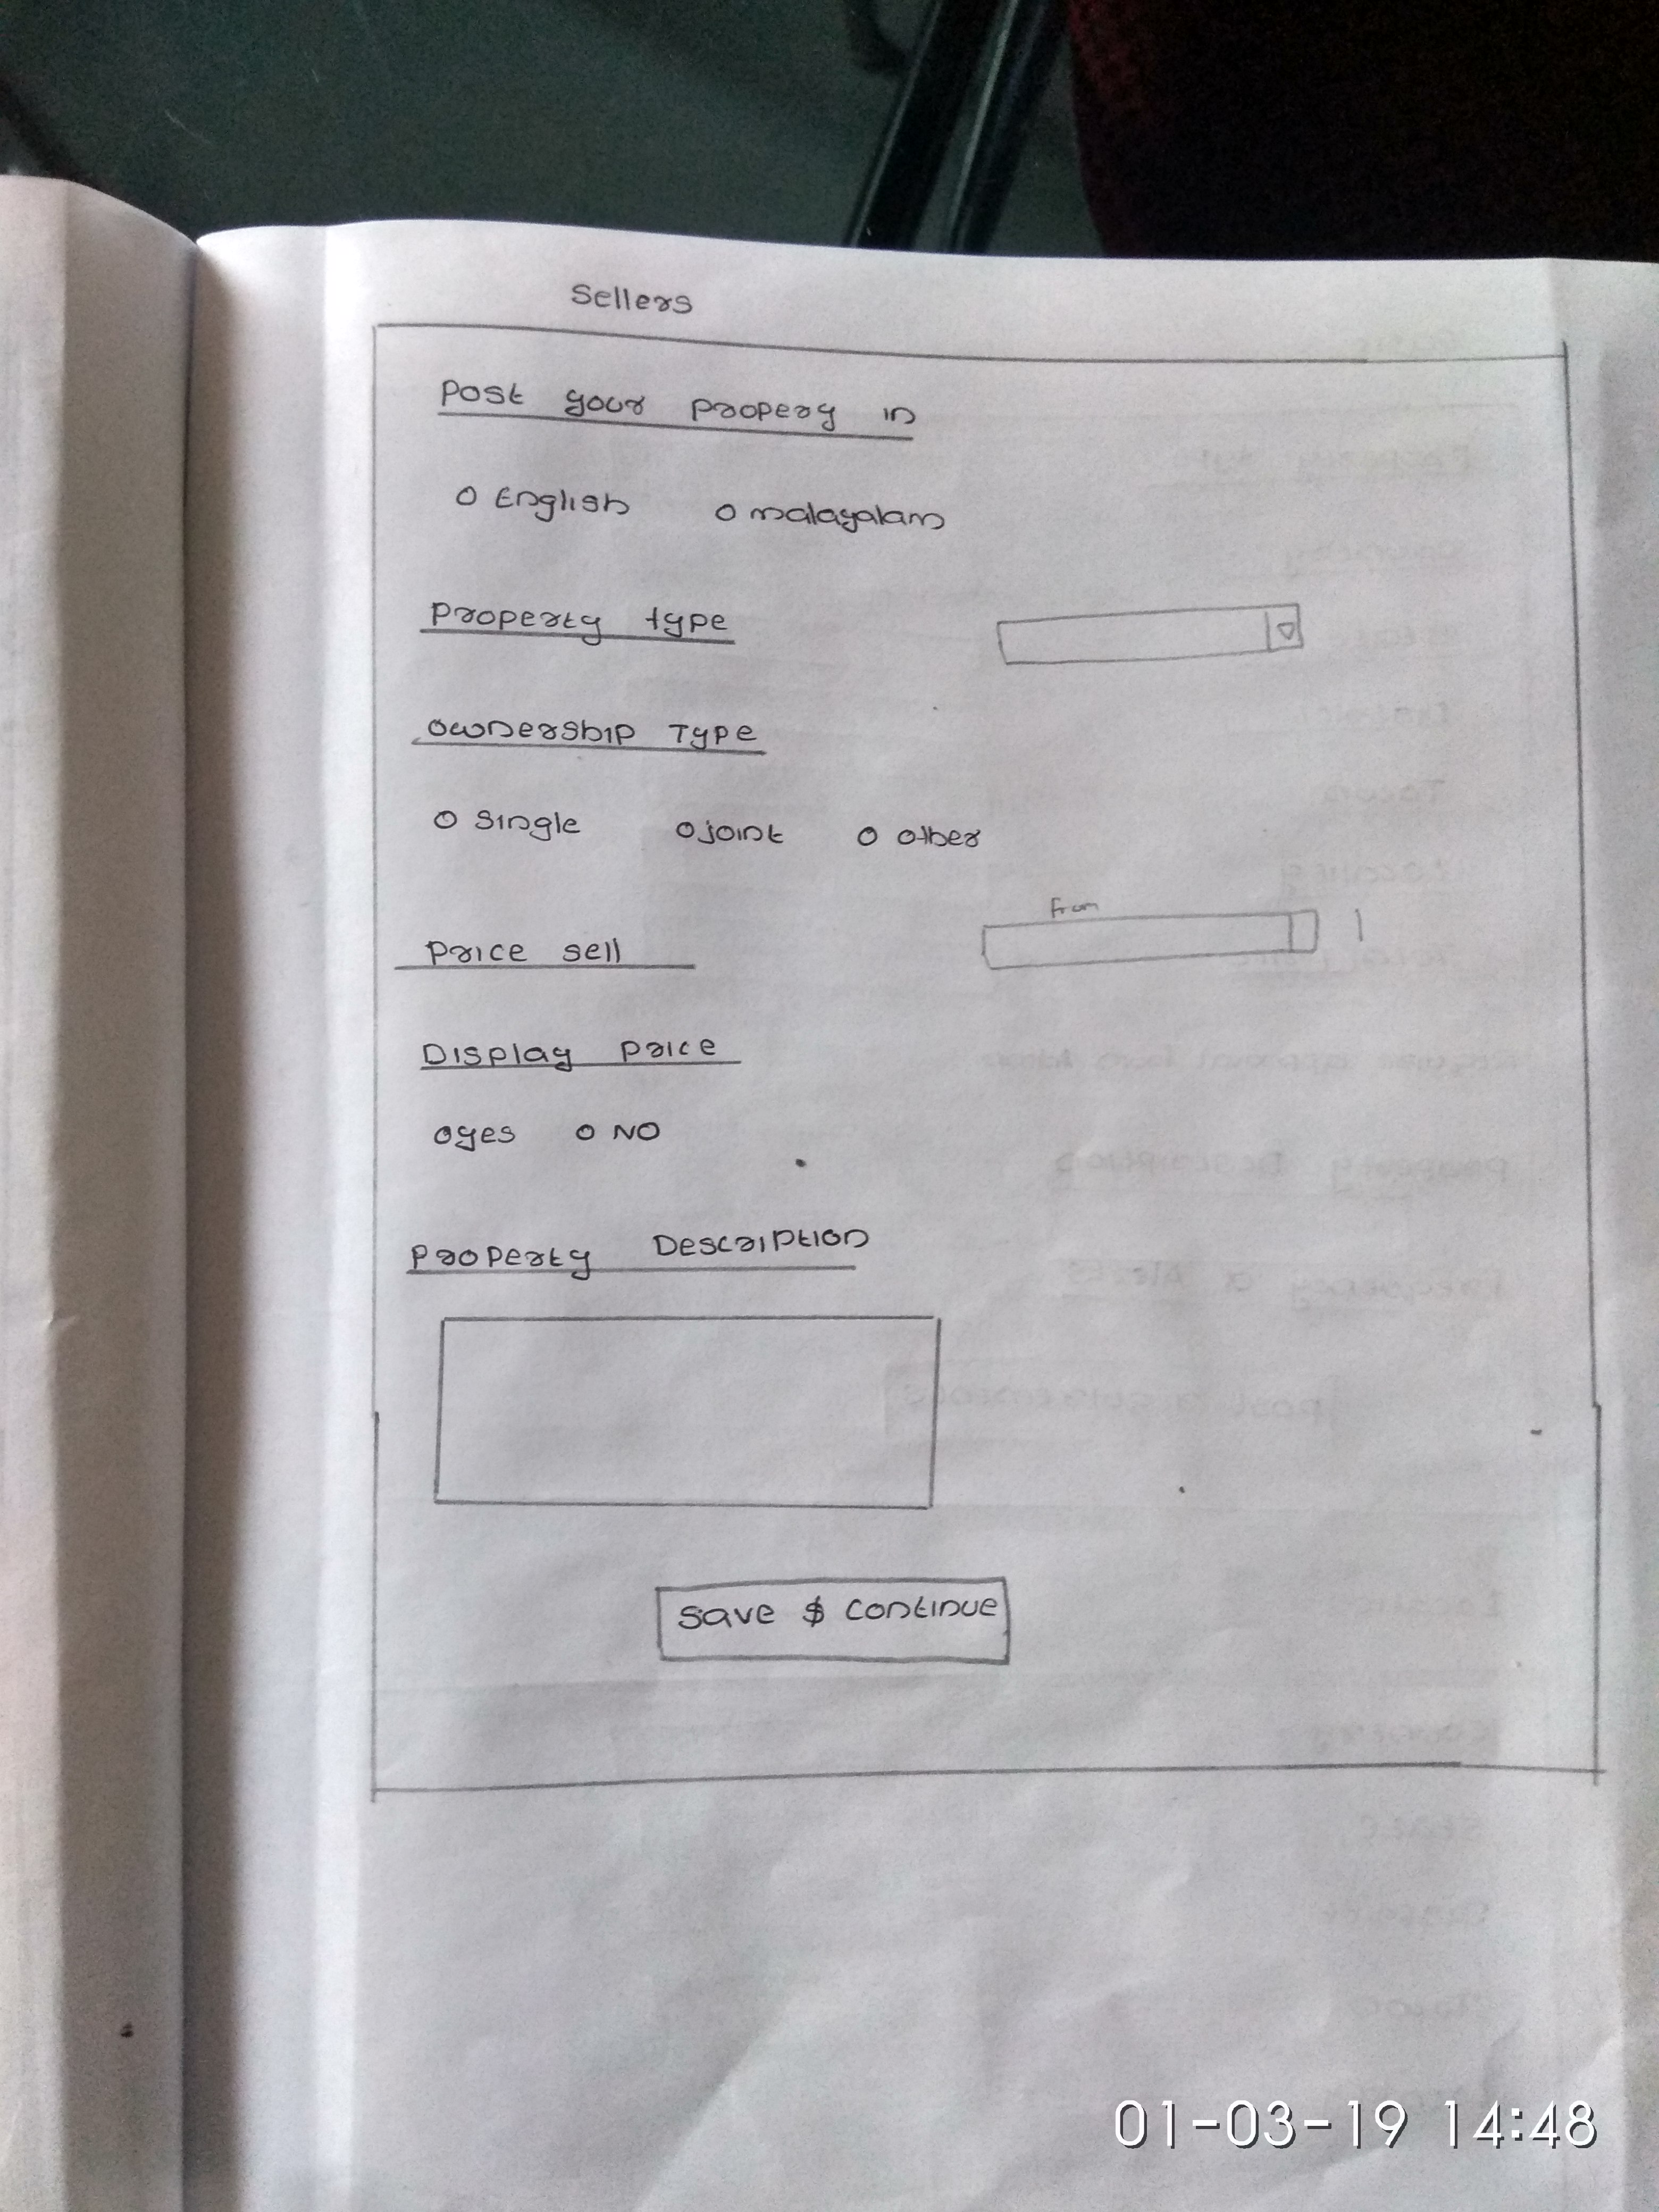 Sellers
Post your propery in
English malayalam
Property type
Ownership Type
Single joint other
From
Price sell
Display price
yes NO
Property Description
Save $ continue
01-03-19 14:48